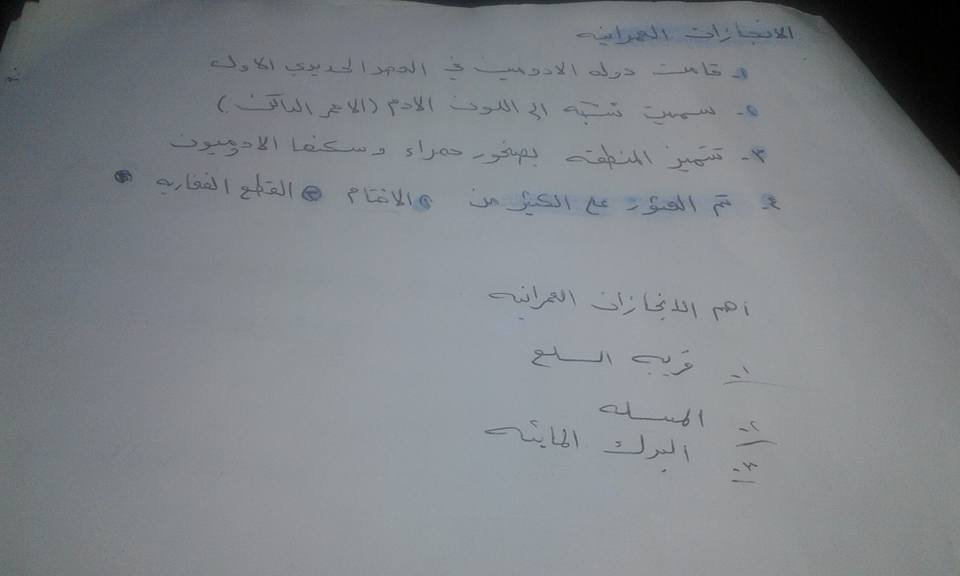 الانجازات العمرانيه
١- قامت دوله الادوميين في العصر الحديدي الاول
٢- سميت نسبه الى اللون الادم (الاحمر الداكن)
٣- تتميز المنطقه بصخور حمراء وسكنها الادوميون
٤- تم العثور على الكثير من ١ الاختام ٢ القطع الفخاريه
أهم الانجازات العمرانيه
١- قريه السلع
٢- المسله
٣- البرك المائيه